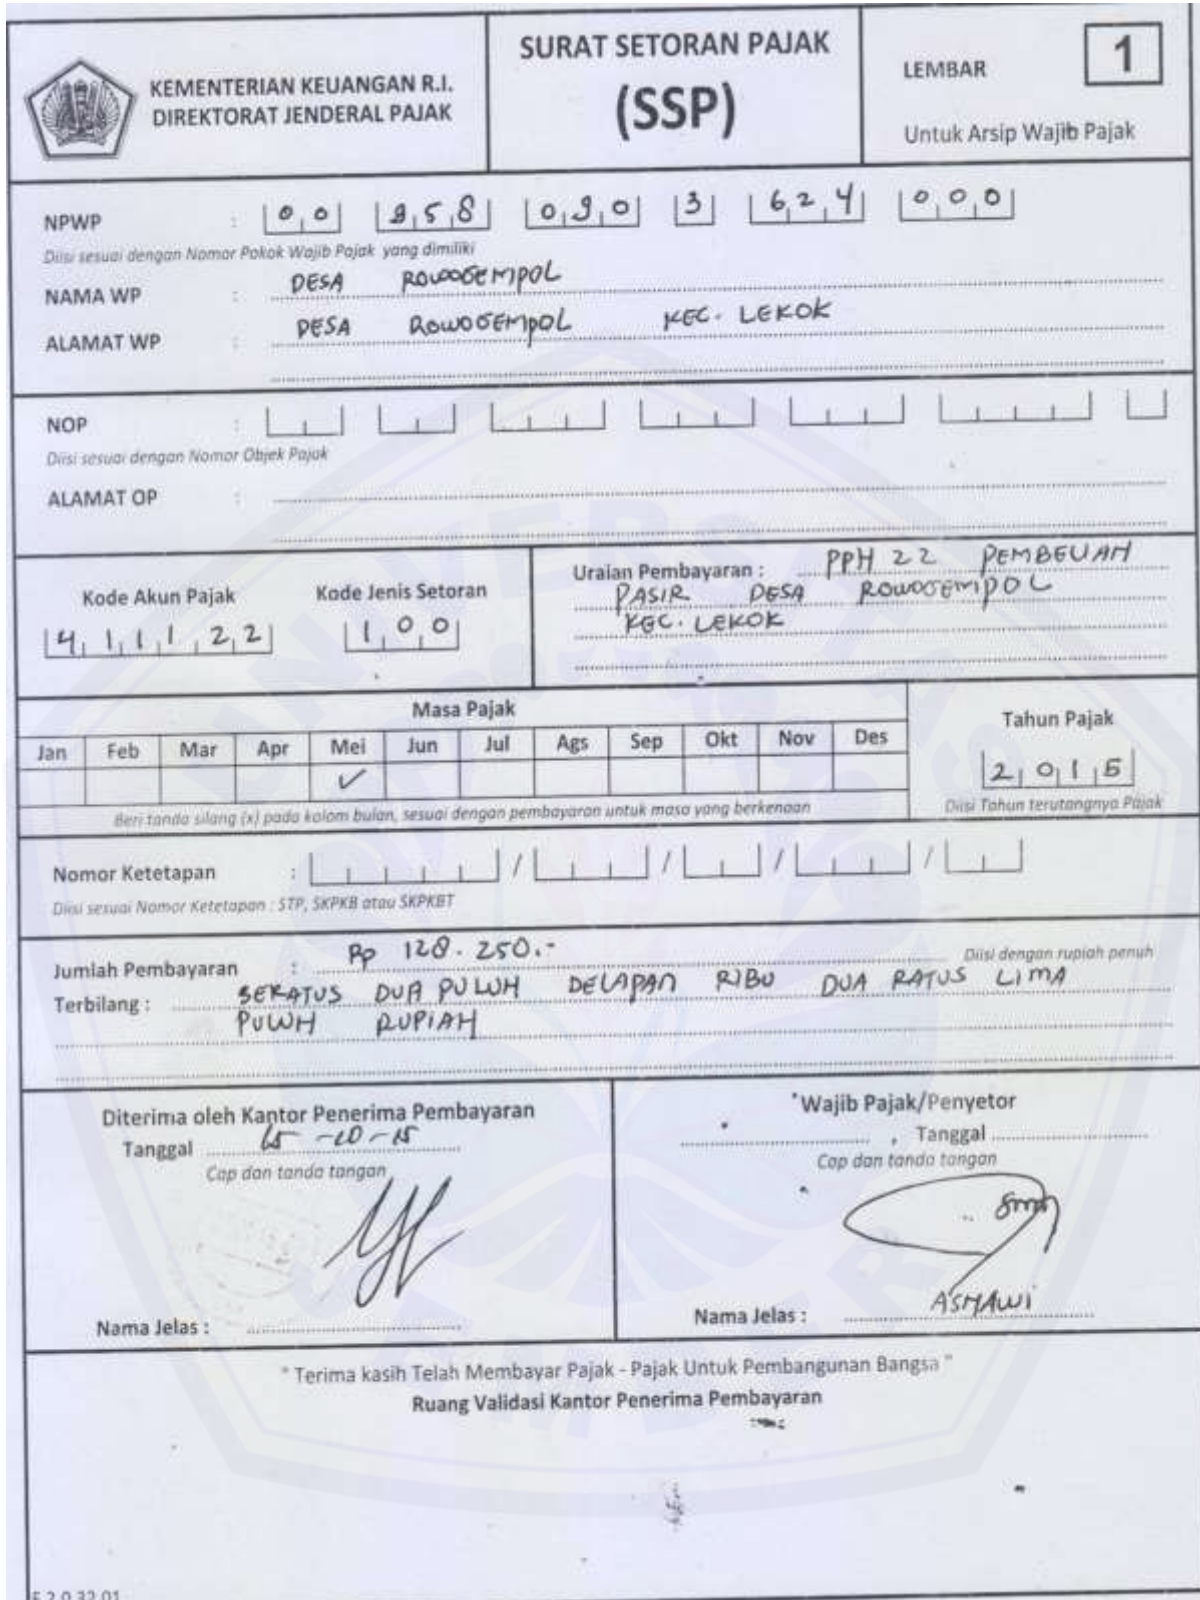 KEMENTERIAN KEUANGAN R.I.
DIREKTORAT JENDERAL PAJAK
SURAT SETORAN PAJAK
(SSP)
LEMBAR 1
Untuk Arsip Wajib Pajak
NPWP : 00 958 090 3 624 000
Diisi sesuai dengan Nomor Pokok Wajib Pajak yang dimiliki
NAMA WP : DESA ROWOGEMPOL
ALAMAT WP : DESA ROWOGEMPOL KEC. LEKOK
NOP :
Diisi sesuai dengan Nomor Objek Pajak
ALAMAT OP :
Kode Akun Pajak
411122
Kode Jenis Setoran
100
Uraian Pembayaran : PPH 22 PEMBELIAN
PASIR DESA ROWOGEMPOL
KEC. LEKOK
Masa Pajak
Jan Feb Mar Apr Mei Jun Jul Ags Sep Okt Nov Des
✓
Beri tanda silang (x) pada kolom bulan, sesuai dengan pembayaran untuk masa yang berkenaan
Tahun Pajak
2015
Diisi Tahun terutangnya Pajak
Nomor Ketetapan : / / / /
Diisi sesuai Nomor Ketetapan : STP, SKPKB atau SKPKBT
Jumlah Pembayaran : Rp 128.250.-
Diisi dengan rupiah penuh
Terbilang : SERATUS DUA PULUH DELAPAN RIBU DUA RATUS LIMA
PULUH RUPIAH
Diterima oleh Kantor Penerima Pembayaran
Tanggal -10-15
Cap dan tanda tangan
Nama Jelas :
Wajib Pajak/Penyetor
, Tanggal
Cap dan tanda tangan
Nama Jelas : ASMAWI
" Terima kasih Telah Membayar Pajak - Pajak Untuk Pembangunan Bangsa "
Ruang Validasi Kantor Penerima Pembayaran
F.2.0.32.01
UNIVERSITAS
JEMBER